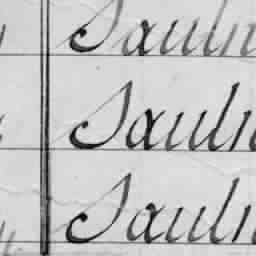 Sauln
Sauln
Sauln